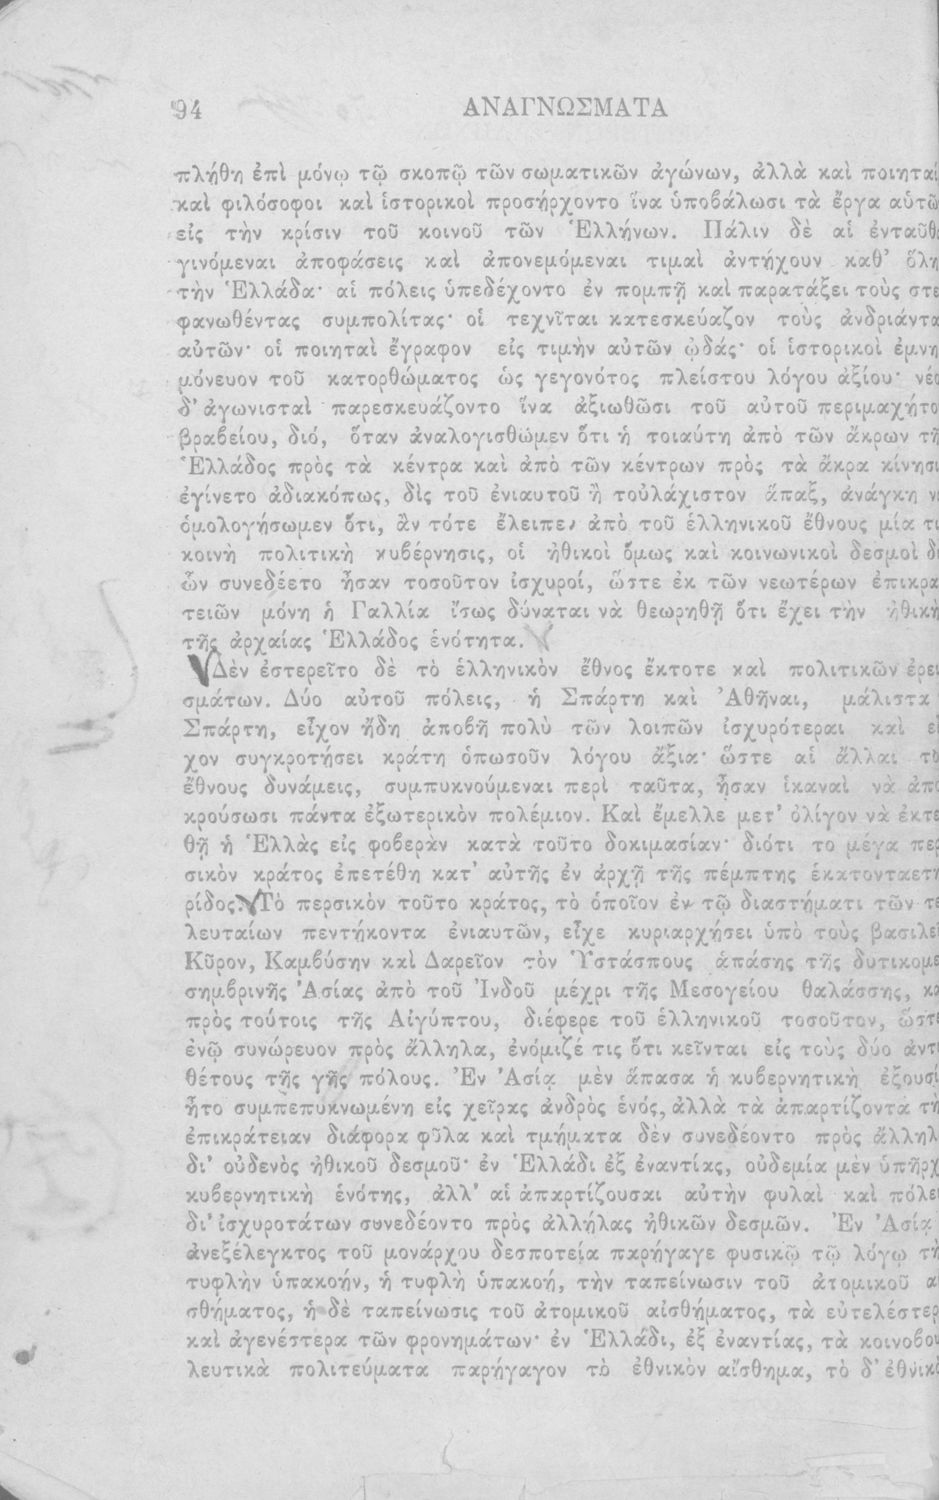 94 ΑΝΑΓΝΩΣΜΑΤΑ
πλήθη ἐπὶ μόνῳ τῷ σκοπῷ τῶν σωματικῶν ἀγώνων, ἀλλὰ καὶ ποιηταὶ
καὶ φιλόσοφοι καὶ ἱστορικοὶ προσήρχοντο ἵνα ὑποβάλωσι τὰ ἔργα αὑτῶ
εἰς τὴν κρίσιν τοῦ κοινοῦ τῶν Ἑλλήνων. Πάλιν δὲ αἱ ἐνταῦθ
γινόμεναι ἀποφάσεις καὶ ἀπονεμόμεναι τιμαὶ ἀντήχουν καθ’ ὅλη
τὴν Ἑλλάδα· αἱ πόλεις ὑπεδέχοντο ἐν πομπῇ καὶ παρατάξει τοὺς στε
φανωθέντας συμπολίτας· οἱ τεχνῖται κατεσκεύαζον τοὺς ἀνδριάντα
αὐτῶν· οἱ ποιηταὶ ἔγραφον εἰς τιμὴν αὐτῶν ᾠδάς· οἱ ἱστορικοὶ ἐμνη
μόνευον τοῦ κατορθώματος ὡς γεγονότος πλείστου λόγου ἀξίου· νέο
δ’ ἀγωνισταὶ παρεσκευάζοντο ἵνα ἀξιωθῶσι τοῦ αὐτοῦ περιμαχήτο
βραβείου, διό, ὅταν ἀναλογισθῶμεν ὅτι ἡ τοιαύτη ἀπὸ τῶν ἄκρων τῆ
Ἑλλάδος πρὸς τὰ κέντρα καὶ ἀπὸ τῶν κέντρων πρὸς τὰ ἄκρα κίνησι
ἐγίνετο ἀδιακόπως, δὶς τοῦ ἐνιαυτοῦ ἢ τοὐλάχιστον ἅπαξ, ἀνάγκη ν
ὁμολογήσωμεν ὅτι, ἂν τότε ἔλειπεν ἀπὸ τοῦ ἑλληνικοῦ ἔθνους μία τι
κοινὴ πολιτικὴ κυβέρνησις, οἱ ἠθικοὶ ὅμως καὶ κοινωνικοὶ δεσμοὶ δι
ὧν συνεδέετο ἦσαν τοσοῦτον ἰσχυροί, ὥστε ἐκ τῶν νεωτέρων ἐπικρα
τειῶν μόνη ἡ Γαλλία ἴσως δύναται νὰ θεωρηθῇ ὅτι ἔχει τὴν ἠθικὴ
τῆς ἀρχαίας Ἑλλάδος ἑνότητα.
Δὲν ἐστερεῖτο δὲ τὸ ἑλληνικὸν ἔθνος ἔκτοτε καὶ πολιτικῶν ἐρει
σμάτων. Δύο αὐτοῦ πόλεις, ἡ Σπάρτη καὶ Ἀθῆναι, μάλιστα
Σπάρτη, εἶχον ἤδη ἀποβῆ πολὺ τῶν λοιπῶν ἰσχυρότεραι καὶ εἶ
χον συγκροτήσει κράτη ὁπωσοῦν λόγου ἄξια· ὥστε αἱ ἄλλαι το
ἔθνους δυνάμεις, συμπυκνούμεναι περὶ ταῦτα, ἦσαν ἱκαναὶ νὰ ἀπο
κρούσωσι πάντα ἐξωτερικὸν πολέμιον. Καὶ ἔμελλε μετ’ ὀλίγον νὰ ἐκτε
θῇ ἡ Ἑλλὰς εἰς φοβερὰν κατὰ τοῦτο δοκιμασίαν· διότι το μέγα περ
σικὸν κράτος ἐπετέθη κατ’ αὐτῆς ἐν ἀρχῇ τῆς πέμπτης ἑκατονταετη
ρίδος. Τὸ περσικὸν τοῦτο κράτος, τὸ ὁποῖον ἐν τῷ διαστήματι τῶν τε
λευταίων πεντήκοντα ἐνιαυτῶν, εἶχε κυριαρχήσει ὑπὸ τοὺς βασιλεῖ
Κῦρον, Καμβύσην καὶ Δαρεῖον τὸν Ὑστάσπους ἁπάσης τῆς δυτικομε
σημβρινῆς Ἀσίας ἀπὸ τοῦ Ἰνδοῦ μέχρι τῆς Μεσογείου θαλάσσης, κα
πρὸς τούτοις τῆς Αἰγύπτου, διέφερε τοῦ ἑλληνικοῦ τοσοῦτον, ὥστε
ἐνῷ συνώρευον πρὸς ἄλληλα, ἐνόμιζέ τις ὅτι κεῖνται εἰς τοὺς δύο ἀντι
θέτους τῆς γῆς πόλους. Ἐν Ἀσίᾳ μὲν ἅπασα ἡ κυβερνητικὴ ἐξουσί
ἦτο συμπεπυκνωμένη εἰς χεῖρας ἀνδρὸς ἑνός, ἀλλὰ τὰ ἀπαρτίζοντα τὴ
ἐπικράτειαν διάφορα φῦλα καὶ τμήματα δὲν συνεδέοντο πρὸς ἄλληλ
δι’ οὐδενὸς ἠθικοῦ δεσμοῦ· ἐν Ἑλλάδι ἐξ ἐναντίας, οὐδεμία μὲν ὑπῆρχ
κυβερνητικὴ ἑνότης, ἀλλ’ αἱ ἀπαρτίζουσαι αὐτὴν φυλαὶ καὶ πόλε
δι’ ἰσχυροτάτων συνεδέοντο πρὸς ἀλλήλας ἠθικῶν δεσμῶν. Ἐν Ἀσίᾳ
ἀνεξέλεγκτος τοῦ μονάρχου δεσποτεία παρήγαγε φυσικῷ τῷ λόγῳ τὴ
τυφλὴν ὑπακοήν, ἡ τυφλὴ ὑπακοή, τὴν ταπείνωσιν τοῦ ἀτομικοῦ α
σθήματος, ἡ δὲ ταπείνωσις τοῦ ἀτομικοῦ αἰσθήματος, τὰ εὐτελέστερ
καὶ ἀγενέστερα τῶν φρονημάτων· ἐν Ἑλλάδι, ἐξ ἐναντίας, τὰ κοινοβου
λευτικὰ πολιτεύματα παρήγαγον τὸ ἐθνικὸν αἴσθημα, τὸ δ’ ἐθνικὸ